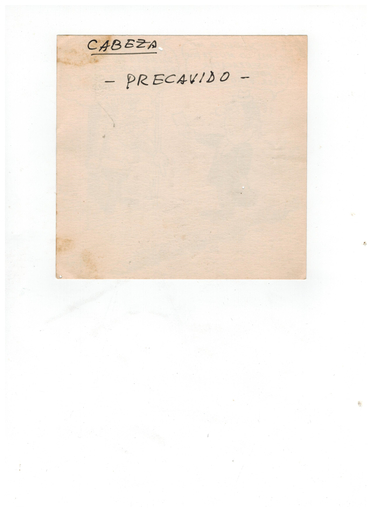 CABEZA
- PRECAVIDO -